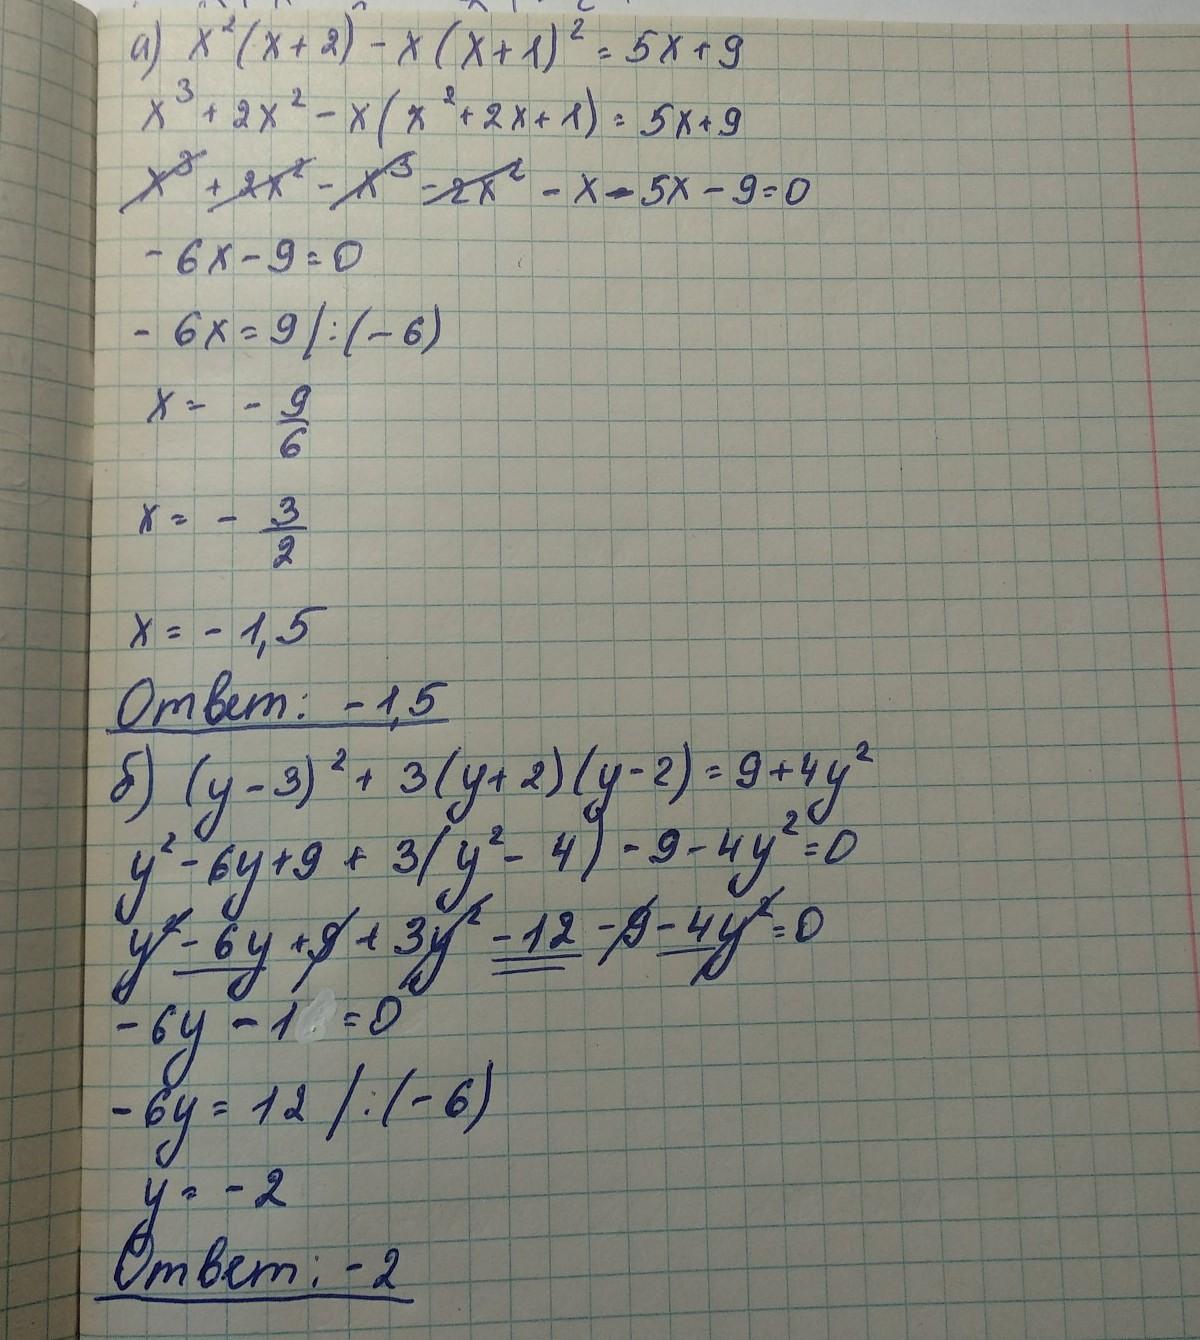 а) x²(x+2) - x(x+1)² = 5x+9
x³ + 2x² - x(x² + 2x + 1) = 5x+9
x³ + 2x² - x³ - 2x² - x - 5x - 9 = 0
- 6x - 9 = 0
- 6x = 9 /:(-6)
x = - 9/6
x = - 3/2
x = - 1,5
Ответ: - 1,5
б) (y - 3)² + 3(y+2)(y-2) = 9+4y²
y² - 6y + 9 + 3(y² - 4) - 9 - 4y² = 0
y² - 6y + 9 + 3y² - 12 - 9 - 4y² = 0
- 6y - 1 = 0
- 6y = 12 /:(-6)
y = - 2
Ответ: - 2